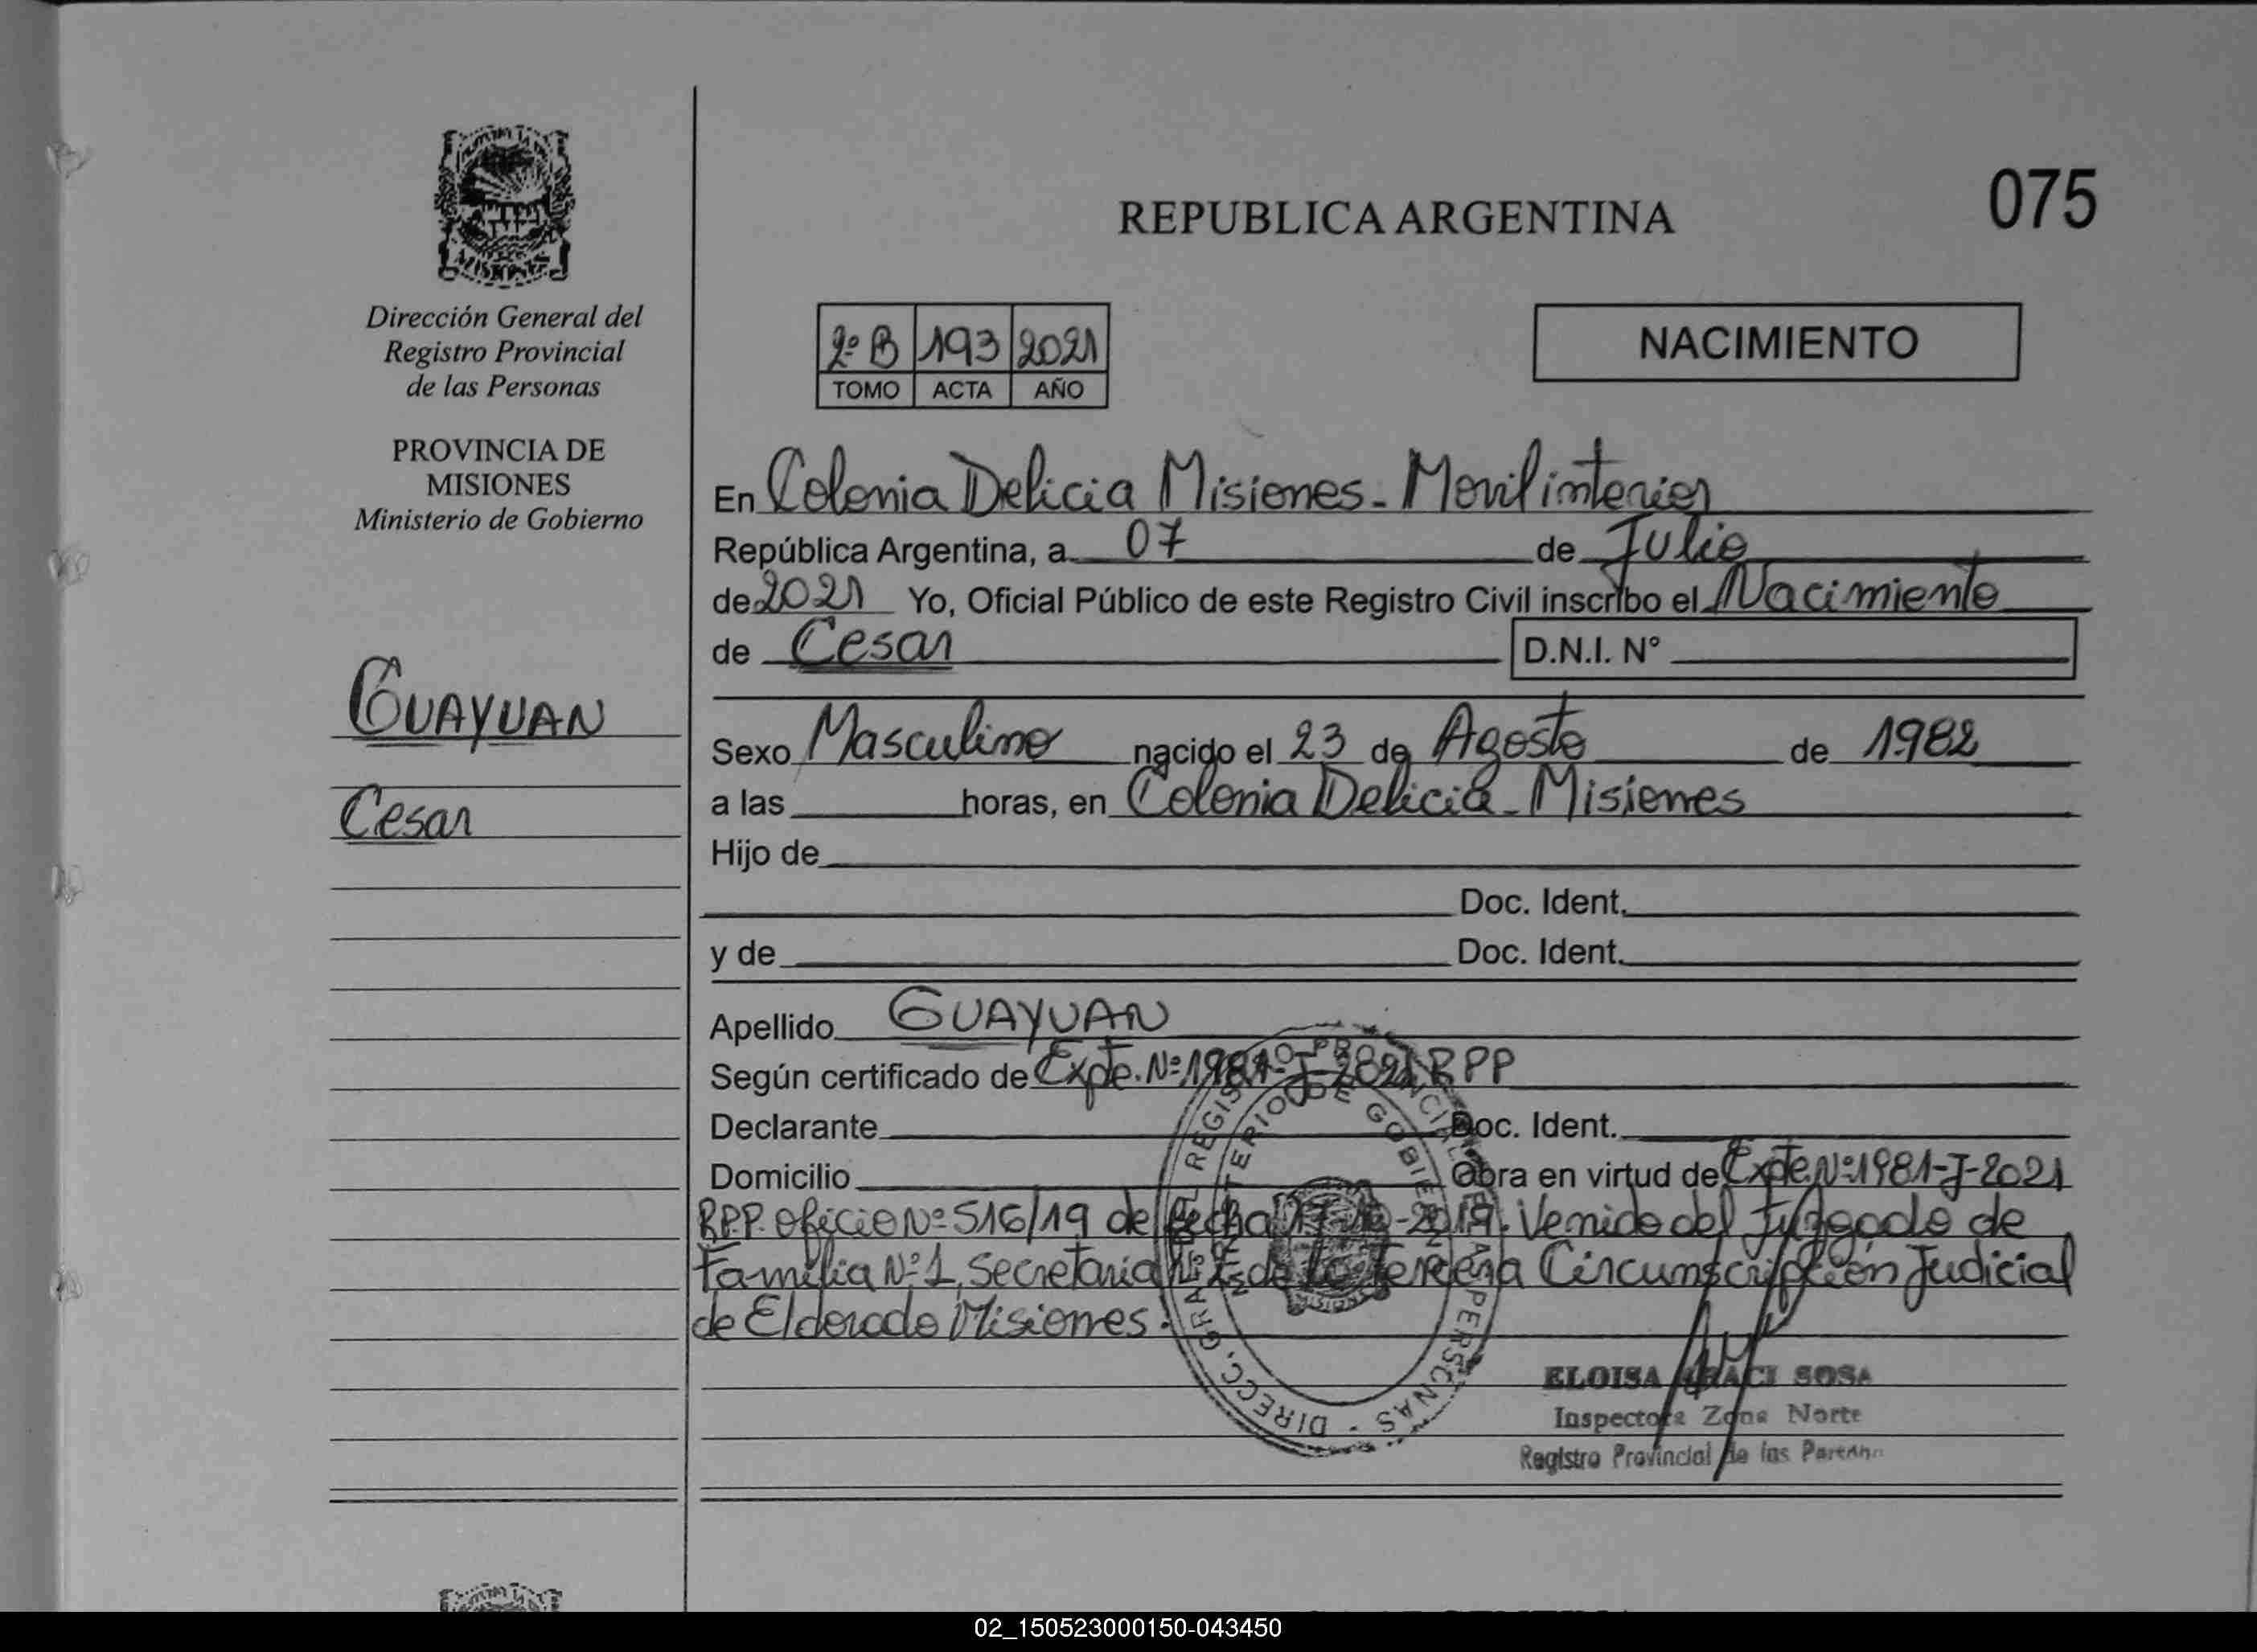 075
REPUBLICA ARGENTINA
Dirección General del
Registro Provincial
de las Personas
PROVINCIA DE
MISIONES
Ministerio de Gobierno
GUAYUAN
Cesar
2º B 193 2021
TOMO ACTA AÑO
NACIMIENTO
En Colonia Delicia Misiones - Movil interior
República Argentina, a 07 de Julio
de 2021 Yo, Oficial Público de este Registro Civil inscribo el Nacimiento
de Cesar D.N.I. Nº
Sexo Masculino nacido el 23 de Agosto de 1982
a las horas, en Colonia Delicia - Misiones
Hijo de
Doc. Ident.
y de Doc. Ident.
Apellido GUAYUAN
Según certificado de Expte. Nº 1981-J-2021 RPP
Declarante Doc. Ident.
Domicilio Obra en virtud de Expte Nº 1981-J-2021
R.P.P. Oficio Nº 516/19 de fecha -2019. Venido del Juzgado de
Familia Nº 1, Secretaria de la Tercera Circunscripción Judicial
de Eldorado Misiones.
ELOISA ARACI SOSA
Inspectora Zona Norte
Registro Provincial de las
02_150523000150-043450